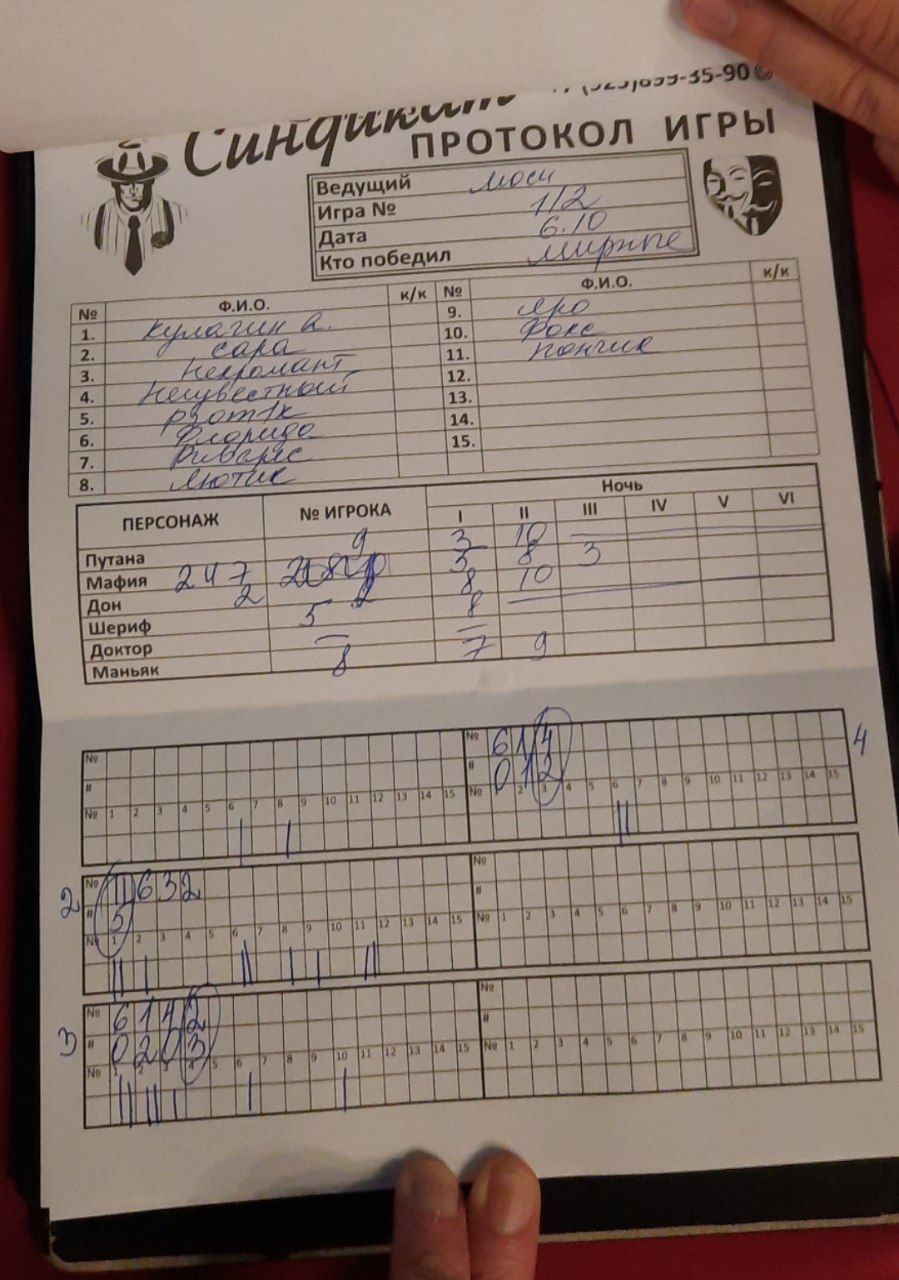 Синдикат
ПРОТОКОЛ ИГРЫ
Ведущий
Игра № 1/2
Дата 6.10
Кто победил мирные
№ Ф.И.О. к/к № Ф.И.О. к/к
1. Кулагин а. 9. Яро
2. сара 10. Фокс
3. Некромант 11. Пончик
4. Неизвестный 12.
5. 13.
6. Флорида 14.
7. Риварес 15.
8. Лютик
ПЕРСОНАЖ № ИГРОКА Ночь
I II III IV V VI
Путана 9 3 10
Мафия 2 4 7 3 8 3
Дон 2 8 10
Шериф 5 8
Доктор — —
Маньяк 8 7 9
№ № 6 1 4 4
# # 0 1 2
№ 1 2 3 4 5 6 7 8 9 10 11 12 13 14 15 № 1 2 3 4 5 6 7 8 9 10 11 12 13 14 15
2 № 11 6 3 2 №
# 5 #
№ 1 2 3 4 5 6 7 8 9 10 11 12 13 14 15 № 1 2 3 4 5 6 7 8 9 10 11 12 13 14 15
3 № 6 1 4 2 №
# 0 2 0 3 #
№ 1 2 3 4 5 6 7 8 9 10 11 12 13 14 15 № 1 2 3 4 5 6 7 8 9 10 11 12 13 14 15